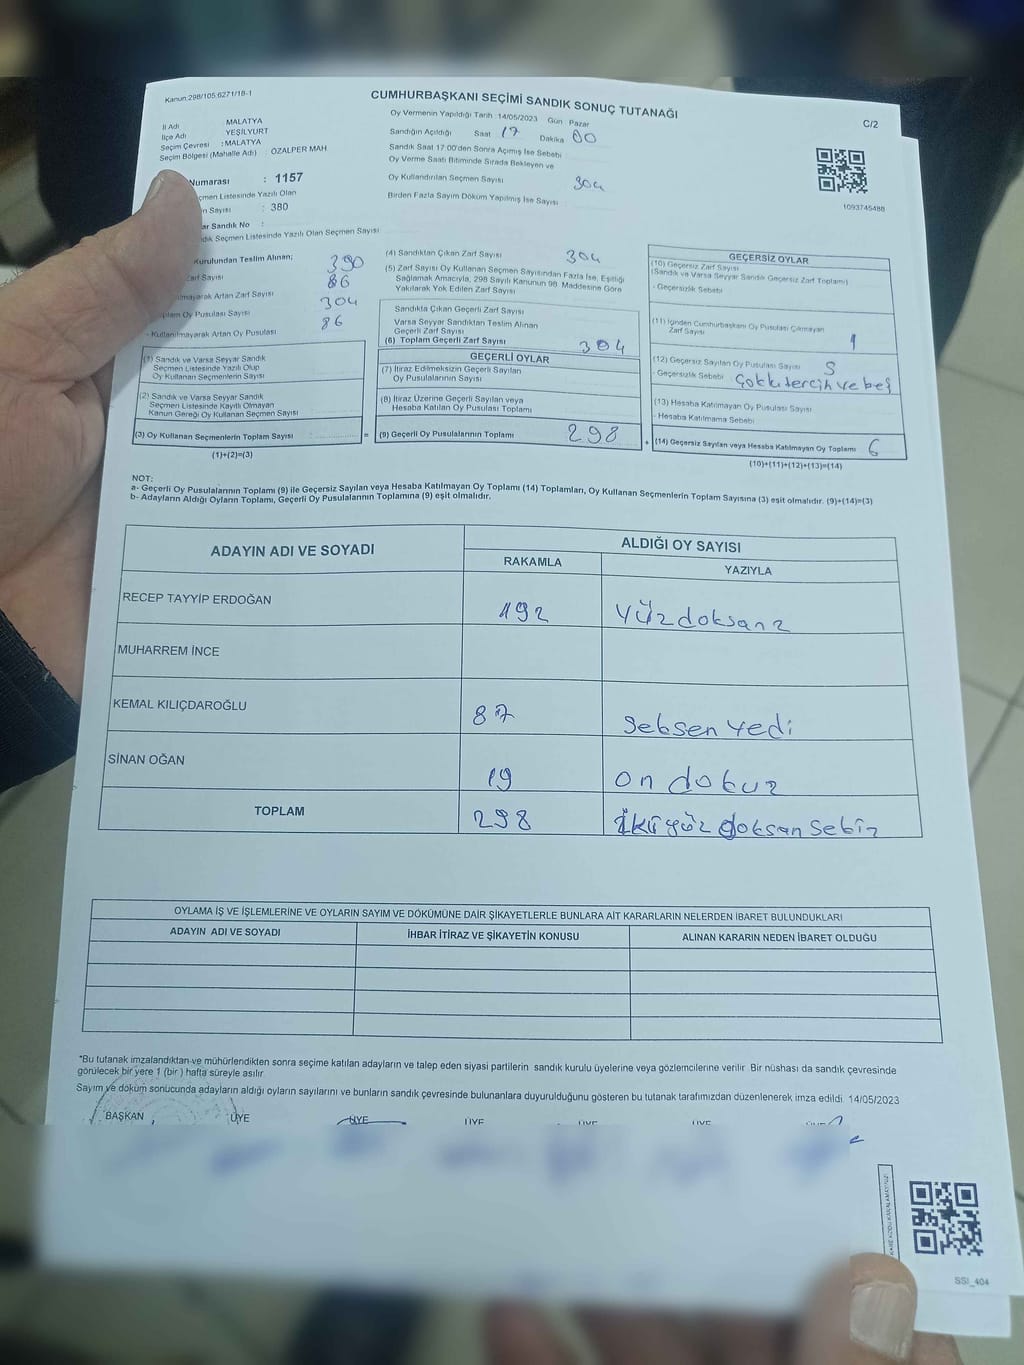 Kanun:298/105;6271/18-1
CUMHURBAŞKANI SEÇİMİ SANDIK SONUÇ TUTANAĞI
C/2
İl Adı MALATYA
İlçe Adı YEŞİLYURT
Seçim Çevresi : MALATYA
Seçim Bölgesi (Mahalle Adı) : ÖZALPER MAH
Numarası : 1157
çmen Listesinde Yazılı Olan
n Sayısı : 380
ar Sandık No :
dık Seçmen Listesinde Yazılı Olan Seçmen Sayısı
Oy Vermenin Yapıldığı Tarih : 14/05/2023 Gün Pazar
Sandığın Açıldığı Saat 17 Dakika 00
Sandık Saat 17:00'den Sonra Açımış İse Sebebi
Oy Verme Saati Bitiminde Sırada Bekleyen ve
Oy Kullandırılan Seçmen Sayısı 304
Birden Fazla Sayım Döküm Yapılmış İse Sayısı
1093745488
Kurulundan Teslim Alınan; 390
Zarf Sayısı 86
Artan Zarf Sayısı 304
Oy Pusulası Sayısı 86
- Kullanılmayarak Artan Oy Pusulası
(1) Sandık ve Varsa Seyyar Sandık
Seçmen Listesinde Yazılı Olup
Oy Kullanan Seçmenlerin Sayısı
(2) Sandık ve Varsa Seyyar Sandık
Seçmen Listesinde Kayıtlı Olmayan
Kanun Gereği Oy Kullanan Seçmen Sayısı
(3) Oy Kullanan Seçmenlerin Toplam Sayısı
(1)+(2)=(3)
=
(4) Sandıktan Çıkan Zarf Sayısı 304
(5) Zarf Sayısı Oy Kullanan Seçmen Sayısından Fazla İse, Eşitliği
Sağlamak Amacıyla, 298 Sayılı Kanunun 98. Maddesine Göre
Yakılarak Yok Edilen Zarf Sayısı
Sandıkta Çıkan Geçerli Zarf Sayısı
Varsa Seyyar Sandıktan Teslim Alınan
Geçerli Zarf Sayısı
(6) Toplam Geçerli Zarf Sayısı 304
GEÇERLİ OYLAR
(7) İtiraz Edilmeksizin Geçerli Sayılan
Oy Pusulalarının Sayısı
(8) İtiraz Üzerine Geçerli Sayılan veya
Hesaba Katılan Oy Pusulası Toplamı
(9) Geçerli Oy Pusulalarının Toplamı 298
+
GEÇERSİZ OYLAR
(10) Geçersiz Zarf Sayısı
(Sandık ve Varsa Seyyar Sandık Geçersiz Zarf Toplamı)
- Geçersizlik Sebebi
(11) İçinden Cumhurbaşkanı Oy Pusulası Çıkmayan
Zarf Sayısı 1
(12) Geçersiz Sayılan Oy Pusulası Sayısı 5
- Geçersizlik Sebebi Çoklu tercih ve beş
(13) Hesaba Katılmayan Oy Pusulası Sayısı
- Hesaba Katılmama Sebebi
(14) Geçersiz Sayılan veya Hesaba Katılmayan Oy Toplamı 6
(10)+(11)+(12)+(13)=(14)
NOT:
a- Geçerli Oy Pusulalarının Toplamı (9) ile Geçersiz Sayılan veya Hesaba Katılmayan Oy Toplamı (14) Toplamları, Oy Kullanan Seçmenlerin Toplam Sayısına (3) eşit olmalıdır. (9)+(14)=(3)
b- Adayların Aldığı Oyların Toplamı, Geçerli Oy Pusulalarının Toplamına (9) eşit olmalıdır.
ADAYIN ADI VE SOYADI ALDIĞI OY SAYISI
RAKAMLA YAZIYLA
RECEP TAYYİP ERDOĞAN 192 Yüz doksan 2
MUHARREM İNCE
KEMAL KILIÇDAROĞLU 87 Seksen Yedi
SİNAN OĞAN 19 on dokuz
TOPLAM 298 İkiyüz doksan Sekiz
OYLAMA İŞ VE İŞLEMLERİNE VE OYLARIN SAYIM VE DÖKÜMÜNE DAİR ŞİKAYETLERLE BUNLARA AİT KARARLARIN NELERDEN İBARET BULUNDUKLARI
ADAYIN ADI VE SOYADI İHBAR İTİRAZ VE ŞİKAYETİN KONUSU ALINAN KARARIN NEDEN İBARET OLDUĞU
*Bu tutanak imzalandıktan ve mühürlendikten sonra seçime katılan adayların ve talep eden siyasi partilerin sandık kurulu üyelerine veya gözlemcilerine verilir. Bir nüshası da sandık çevresinde
görülecek bir yere 1 (bir ) hafta süreyle asılır.
Sayım ve döküm sonucunda adayların aldığı oyların sayılarını ve bunların sandık çevresinde bulunanlara duyurulduğunu gösteren bu tutanak tarafımızdan düzenlenerek imza edildi. 14/05/2023
BAŞKAN ÜYE ÜYE ÜYE ÜYE ÜYE
SSI_404